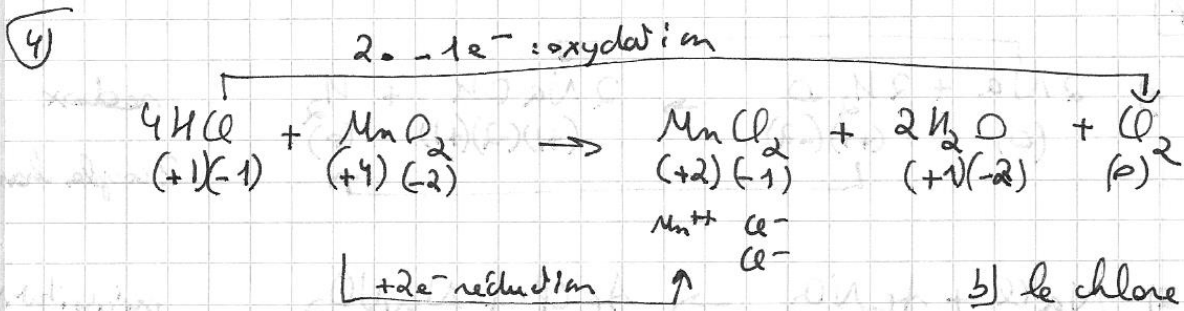 4)
2 • - 1e⁻ : oxydation
4HCl + MnO₂ → MnCl₂ + 2H₂O + Cl₂
(+1)(-1) (+4)(-2) (+2)(-1) (+1)(-2) (0)
Mn⁺⁺ Cl⁻
Cl⁻
+2e⁻ réduction
b) le chlore